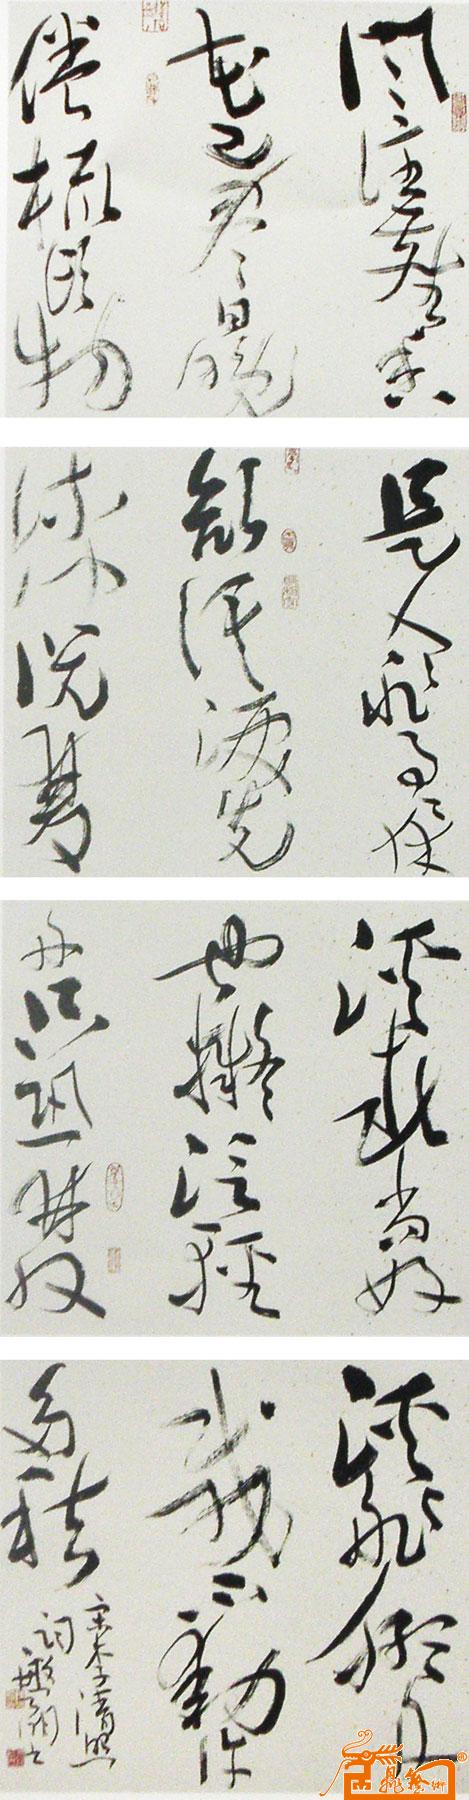 风住尘香
花已尽日晚
倦梳頭物
是人非事〻休
欲语淚先
流闻说雙
溪春尚好
也擬泛轻
舟只恐雙
溪舴艋舟
載不動许
多愁
宋李清照
词